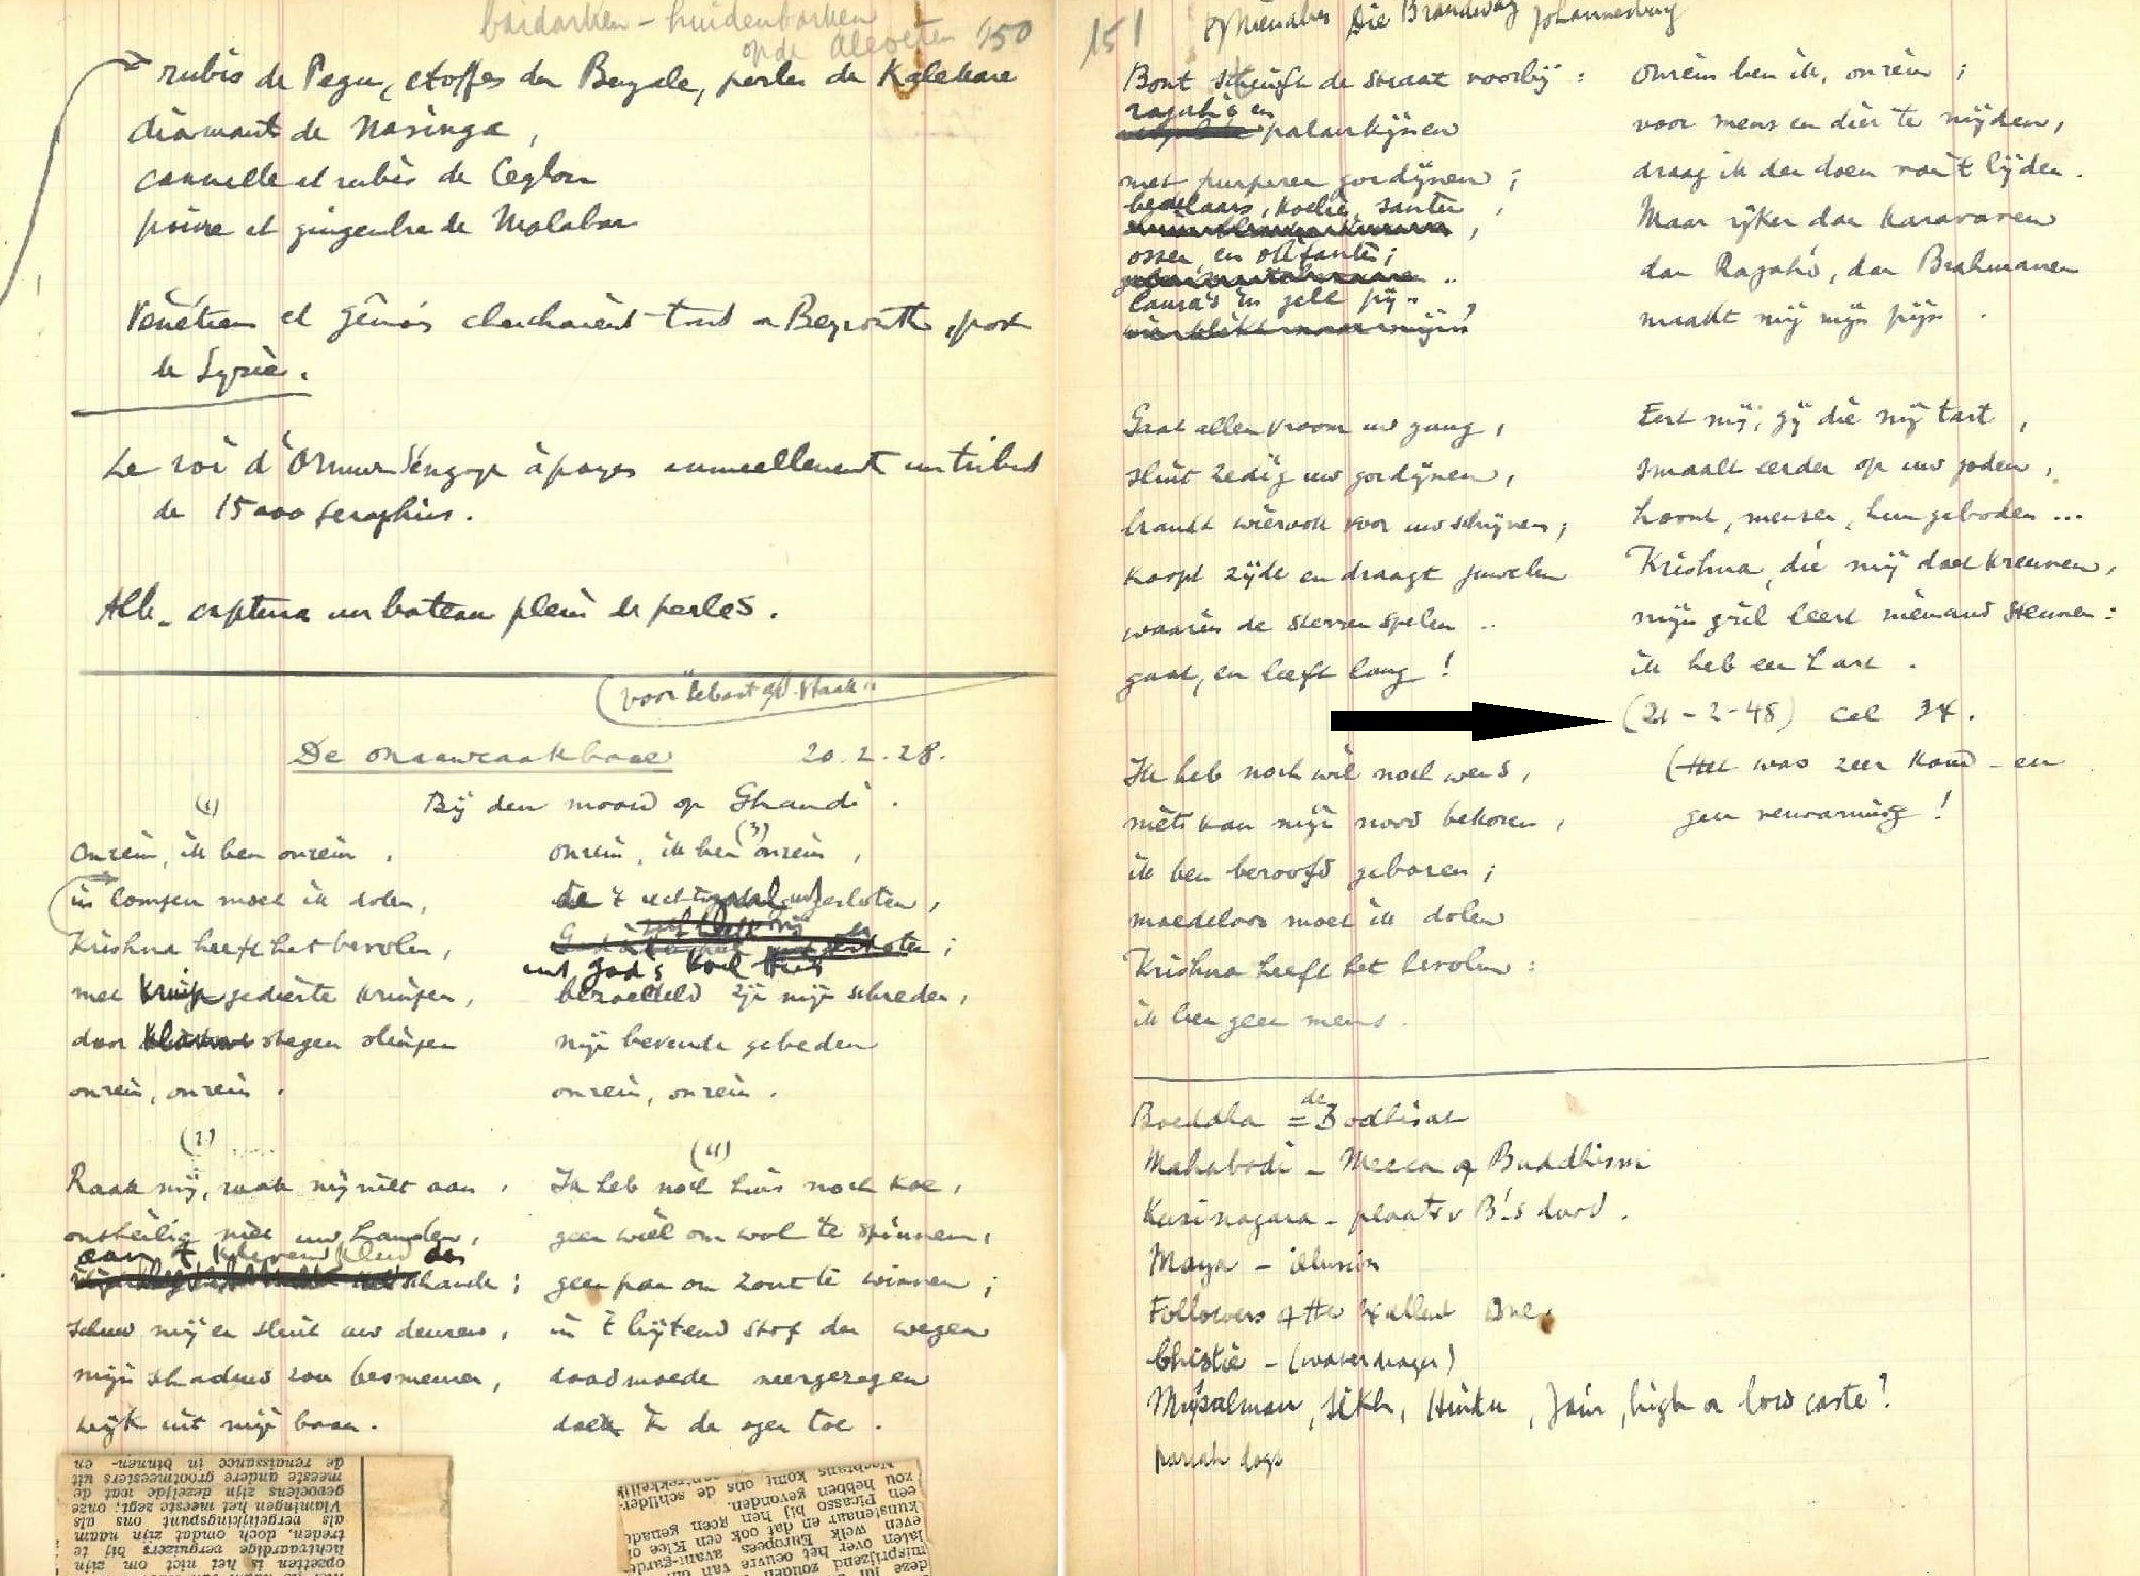 baidarken - huidenbarken
op de Aleoeten 150
rubis de Pegu, etoffes du Bengale, perles de Kalekare
diamant de Nasinga,
cannelle et rubis de Ceylon
poivre et gingembre de Malabar
Vénétiens et Génois cherchaient tout a Beyrouth, port
de Syrië.
Le roi d'Ormuz s'engage à payer annuellement un tribut
de 15000 seraphins.
Alb. captura un bateau plein de perles.
(voor
De onaanraakbare 20.2.28.
Bij den moord op Ghandi.
(1)
Onrein, ik ben onrein,
in lompen moet ik dolen,
Krishna heeft het bevolen,
met kruipgedierte kruipen,
door stegen sluipen
onrein, onrein.
(2)
Raak mij, raak mij niet aan,
ontheilig niet uw handen,
aan 't klevend kleed der
schande;
schuw mij en sluit uw deuren,
mijn schaduw zou besmeuren,
wijk uit mijn baan.
(3)
onrein, ik ben onrein,
uitgesloten,
uit Gods
bezoedeld zijn mijn schreden,
mijn bevende gebeden
onrein, onrein.
(4)
Ik heb noch huis noch koe,
geen wiel om wol te spinnen,
geen pan om zout te winnen;
in 't bijtend stof der wegen
doodmoede neergezegen
doe ik de ogen toe.
de renaissance in binnen- en
meeste andere grootmeesters uit
gevoelens zijn dezelfde wat de
Vlamingen het meeste zegt: onze
als vergelijkingspunt ons als
treden, doch omdat zijn naam
lichtvaardige verguizers bij te
opzetten is het niet om zijn
zou hebben gevonden.
een Picasso bij hen geen genade
kunstenaar en dat ook een Klee of
even welk Europees avant-garde-
laten over het oeuvre van om
misprijzend zouden
151 Die Brandwag Johannesburg
Bont schuift de straat voorbij:
ragahs en
palankijnen
met purperen gordijnen;
bedelaars, koelies, santen,
ossen en olifanten;
lama's in gele pij..
Gaat allen vroom uw gang,
sluit zedig uw gordijnen,
brandt wierook voor uw schrijnen,
koopt zijde en draagt juwelen
waarin de sterren spelen ..
gaat, en leeft lang!
Ik heb noch wil noch wens,
niets kan mijn nood bekoren,
ik ben beroofd geboren;
moedeloos moet ik dolen
Krishna heeft het bevolen:
ik ben geen mens.
Onrein ben ik, onrein;
voor mens en dier te mijden,
draag ik den doem van 't lijden.
Maar rijker dan karavanen
dan Ragahs, dan Brahmanen
maakt mij mijn pijn.
Eert mij, gij die mij tart,
smaalt eerder op uw goden,
hoont, mensen, hun geboden ...
Krishna, die mij doet kreunen,
mijn gril leert niemand steunen:
ik heb een hart.
(21-2-48) cel 34.
(Het was zeer koud - en
geen verwarming!
Boeddha = de Bodhisat
Mahabodi - Mecca of Buddhism
Kusinagara - plaats v B's dood.
Maya - illusion
Followers of the Excellent One
bhistie - (waterdrager)
Musalman, Sikh, Hindu, Jain, high or low caste?
pariah dogs